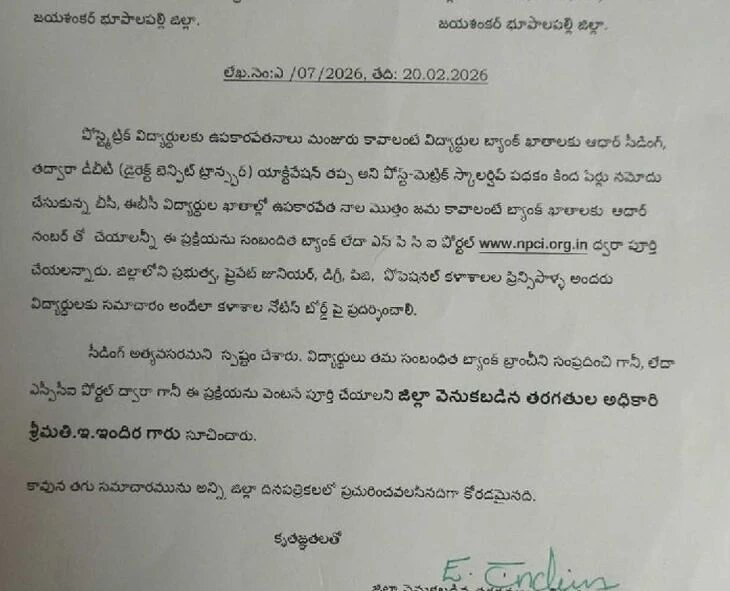 జయశంకర్ భూపాలపల్లి జిల్లా.
జయశంకర్ భూపాలపల్లి జిల్లా.
లేఖ.నెం:ఎ /07/2026, తేది: 20.02.2026
పోస్ట్మెట్రిక్ విద్యార్థులకు ఉపకారవేతనాలు మంజూరు కావాలంటే విద్యార్థుల బ్యాంక్ ఖాతాలకు ఆధార్ సీడింగ్,
తద్వారా డీబీటీ (డైరెక్ట్ బెన్ఫిట్ ట్రాన్ఫ్సర్) యాక్టివేషన్ తప్ప అని పోస్ట్-మెట్రిక్ స్కాలర్షిప్ పథకం కింద పేర్లు నమోదు
చేసుకున్న బీసీ, ఈబీసీ విద్యార్థుల ఖాతాల్లో ఉపకారవేత నాల మొత్తం జమ కావాలంటే బ్యాంక్ ఖాతాలకు ఆధార్
నంబర్ తో చేయాలన్నీ ఈ ప్రక్రియను సంబందిత బ్యాంక్ లేదా ఎన్ పి సి ఐ పోర్టల్ www.npci.org.in ద్వారా పూర్తి
చేయలన్నారు. జిల్లాలోని ప్రభుత్వ, ప్రైవేట్ జూనియర్, డిగ్రీ, పిజి, వొపెషనల్ కళాశాలల ప్రిన్సిపాళ్ళు అందరు
విద్యార్థులకు సమాచారం అందేలా కళాశాల నోటిస్ బోర్డ్ పై ప్రదర్శించాలి.
సీడింగ్ అత్యవసరమని స్పష్టం చేశారు. విద్యార్థులు తమ సంబంధిత బ్యాంక్ బ్రాంచీని సంప్రదించి గానీ, లేదా
ఎన్పీసీఐ పోర్టల్ ద్వారా గానీ ఈ ప్రక్రియను వెంటనే పూర్తి చేయాలని జిల్లా వెనుకబడిన తరగతుల అధికారి
శ్రీమతి.ఇ.ఇందిర గారు సూచించారు.
కావున తగు సమాచారమును అన్ని జిల్లా దినపత్రికలలో ప్రచురించవలసినదిగా కోరడమైనది.
కృతజ్ఞతలతో
E. Indira
జిల్లా వెనుకబడిన